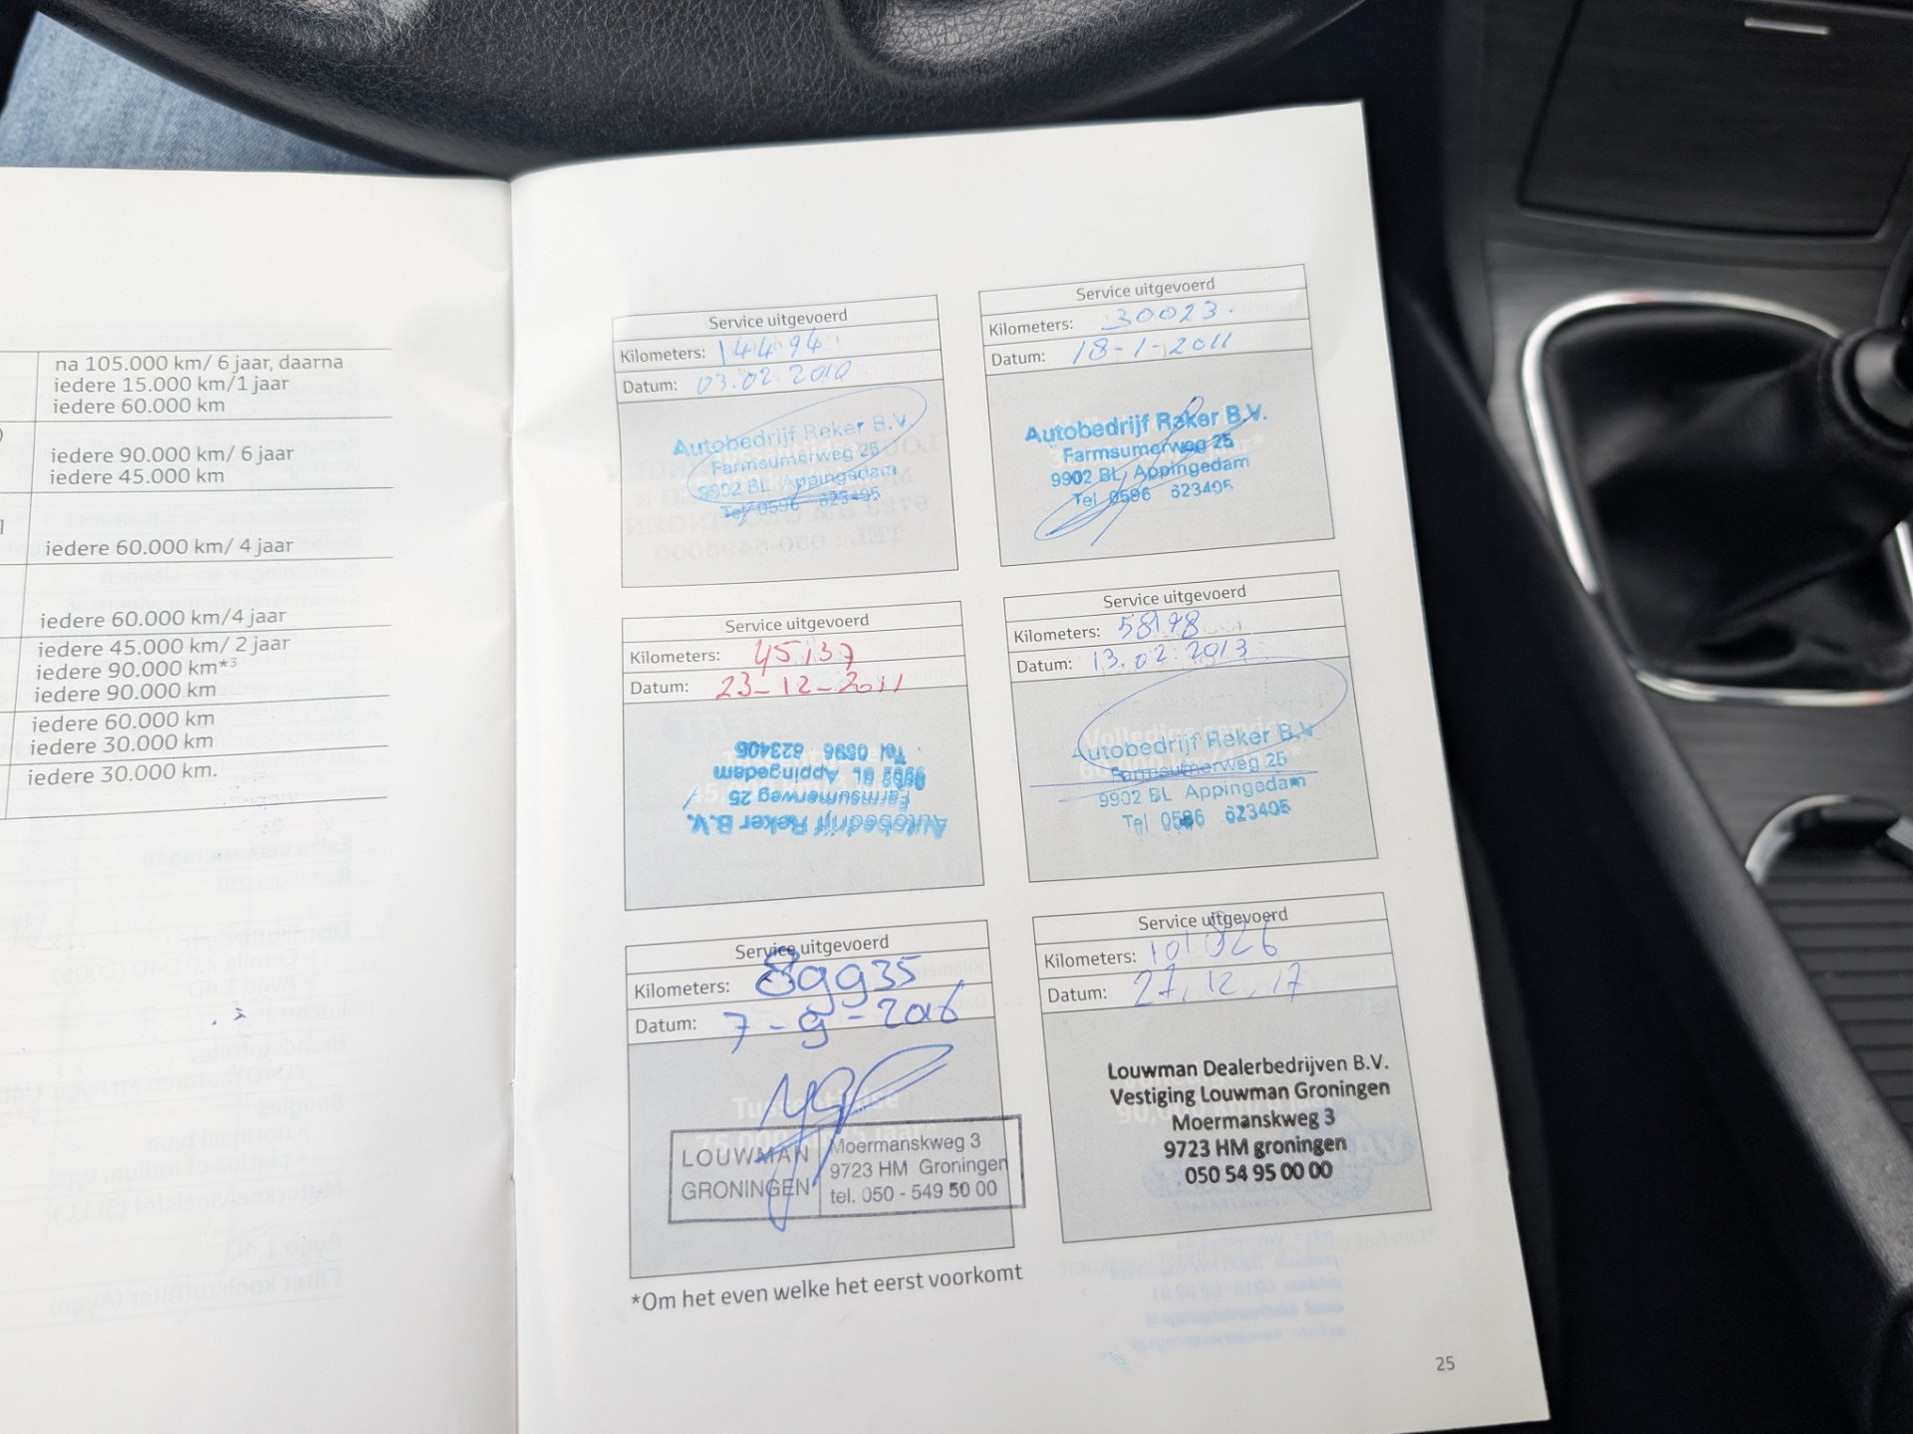 na 105.000 km/ 6 jaar, daarna
iedere 15.000 km/1 jaar
iedere 60.000 km
iedere 90.000 km/ 6 jaar
iedere 45.000 km
iedere 60.000 km/ 4 jaar
iedere 60.000 km/4 jaar
iedere 45.000 km/ 2 jaar
iedere 90.000 km*3
iedere 90.000 km
iedere 60.000 km
iedere 30.000 km
iedere 30.000 km.
Service uitgevoerd
Kilometers: 14494
Datum: 03.02.2010
Autobedrijf Reker B.V.
Farmsumerweg 25
9902 BL Appingedam
Tel 0596 623405
Service uitgevoerd
Kilometers: 30023.
Datum: 18-1-2011
Autobedrijf Reker B.V.
Farmsumerweg 25
9902 BL Appingedam
Tel 0596 623405
Service uitgevoerd
Kilometers: 45137
Datum: 23-12-2011
Autobedrijf Reker B.V.
Farmsumerweg 25
9902 BL Appingedam
Tel 0596 623405
Service uitgevoerd
Kilometers: 58198
Datum: 13.02.2013
Volledige service
Autobedrijf Reker B.V.
Farmsumerweg 25
9902 BL Appingedam
Tel 0596 623405
Service uitgevoerd
Kilometers: 89935
Datum: 7-9-2016
LOUWMAN
GRONINGEN
Moermanskweg 3
9723 HM Groningen
tel. 050 - 549 50 00
Service uitgevoerd
Kilometers: 101826
Datum: 27.12.17
Louwman Dealerbedrijven B.V.
Vestiging Louwman Groningen
Moermanskweg 3
9723 HM groningen
050 54 95 00 00
*Om het even welke het eerst voorkomt
25